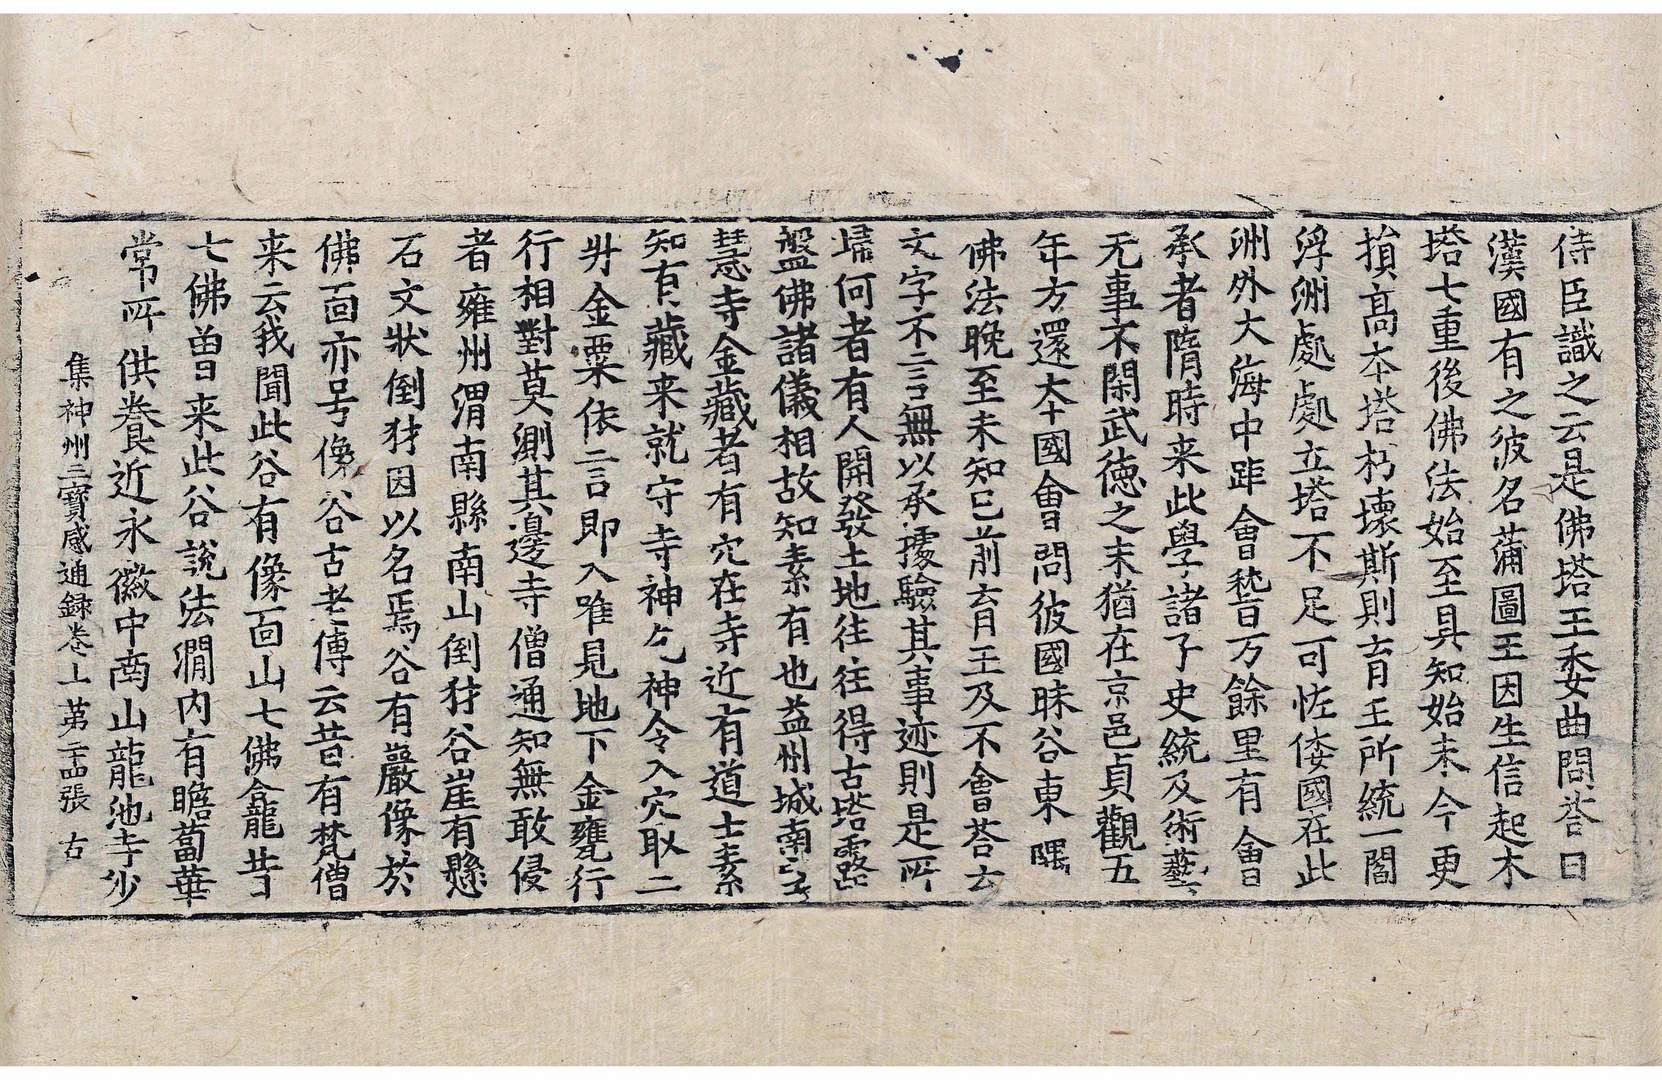 侍臣識之云是佛塔王委曲問荅曰
漢國有之彼名蒲圖王因生信起木
塔七重後佛法始至具知始末今更
損髙本塔朽壞斯則育王所統一閻
浮洲處處立塔不足可恠倭國在此
洲外大海中距會稽万餘里有會
承者隋時来此學諸子史統及術藝
无事不閑武徳之末猶在京邑貞觀五
年方還本國會問彼國昧谷東隅
佛法晚至未知已前育王及不會荅云
文字不言無以承據驗其事迹則是所
歸何者有人開發土地往往得古塔露
盤佛諸儀相故知素有也益州城南空
慧寺金藏者有穴在寺近有道士素
知有藏来就守寺神乞神令入穴取二
升金粟依言即入唯見地下金甕行
行相對莫測其邊寺僧通知無敢侵
者雍州渭南縣南山倒豺谷崖有懸
石文狀倒豺因以名焉谷有巖像於
佛面亦号像谷古老傳云昔有梵僧
来云我聞此谷有像面山七佛龕昔
七佛曾来此谷說法澗内有瞻蔔華
常所供養近永徽中南山龍池寺沙
集神州三寶感通録卷上 第二十四張 右